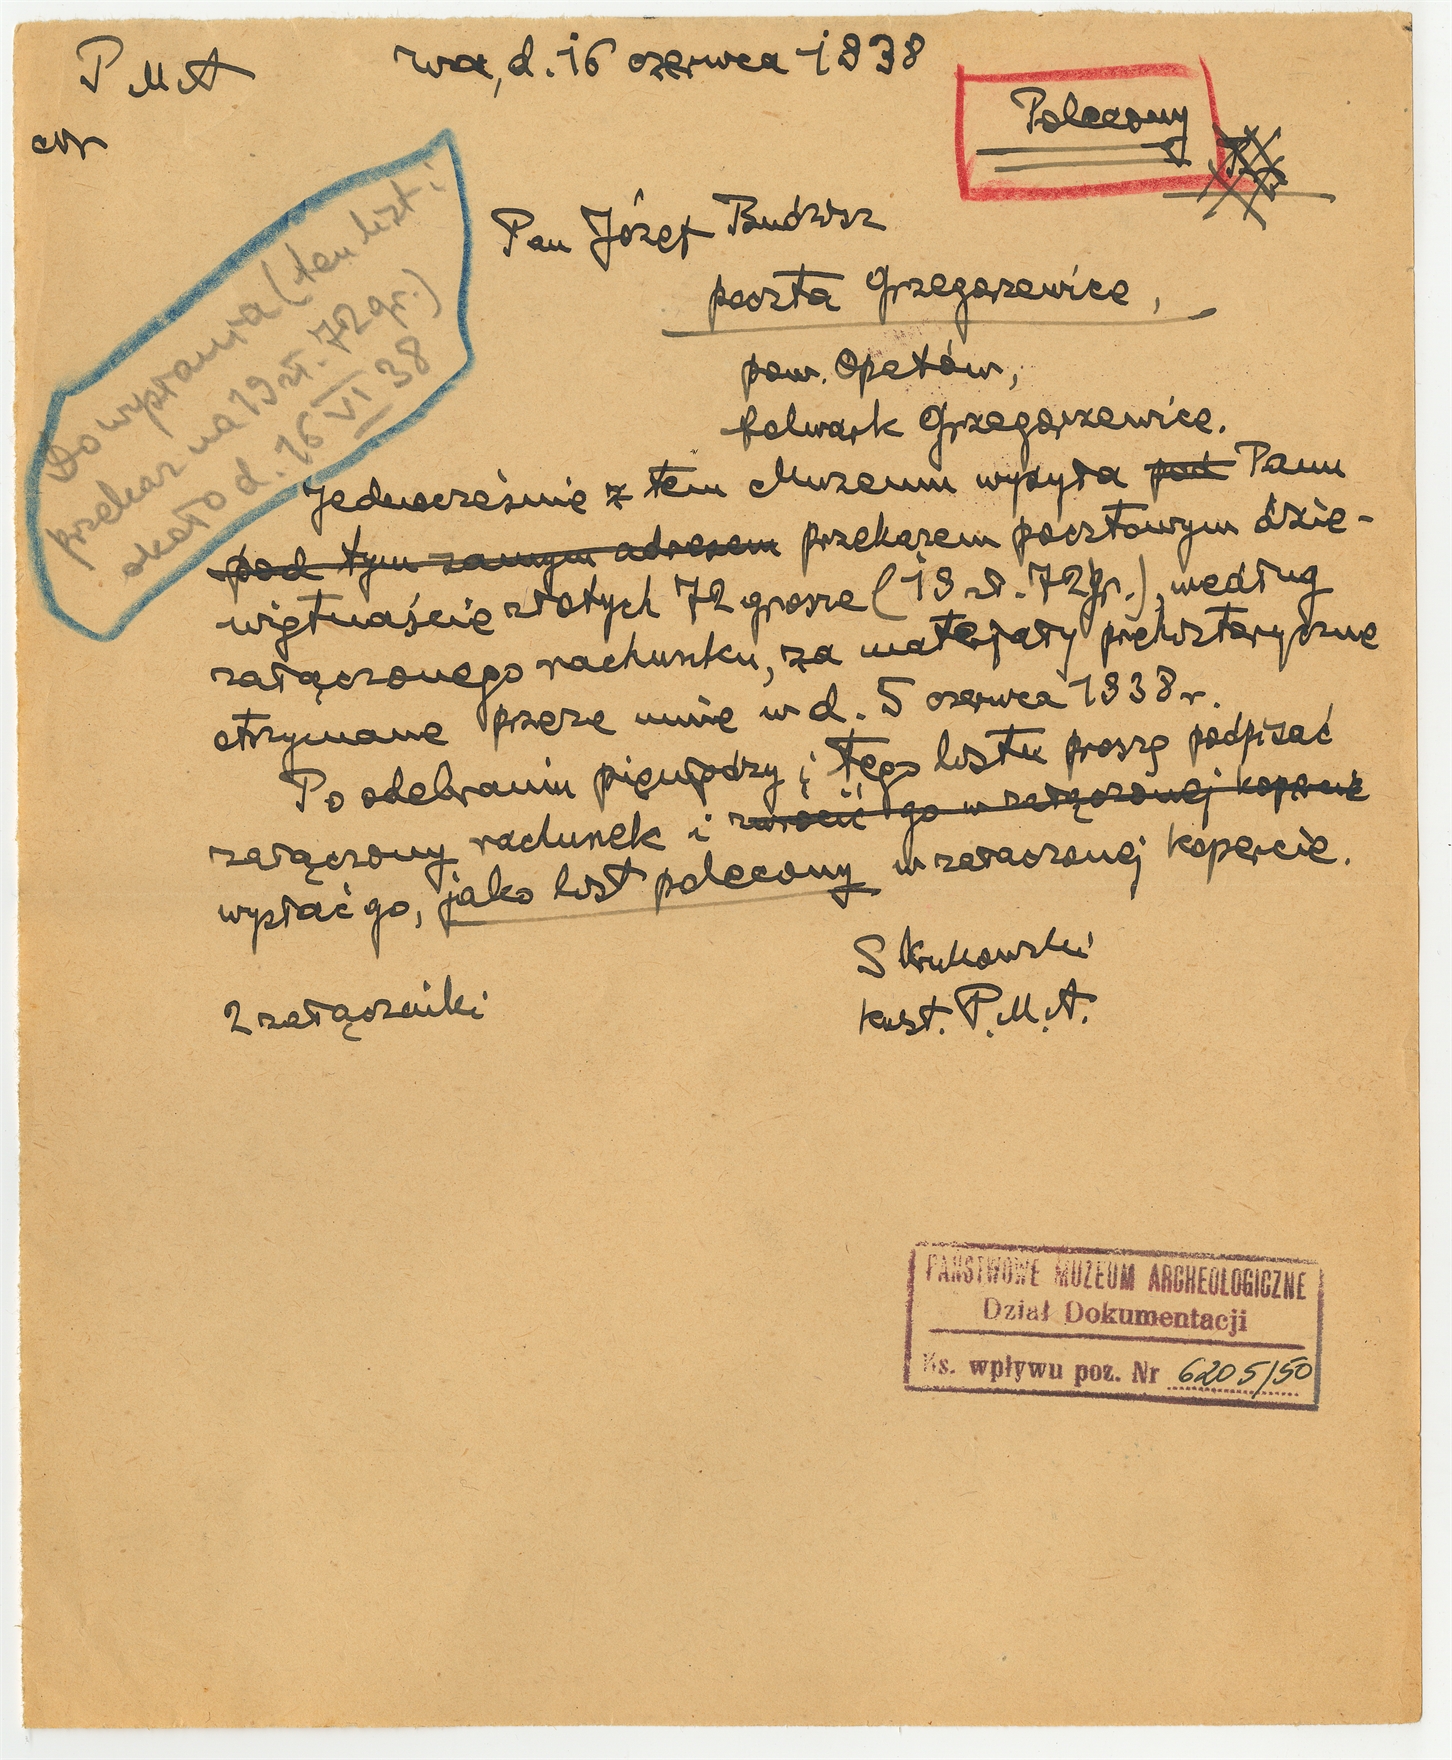 P M A
Wa, d. 16 czerwca 1938
Polecony
Nr
Do wysłania (ten list i
przekaz na 19 zł. 72 gr.)
około d. 16 VI 38
Pan Józef Budzisz
poczta Grzegorzewice,
pow. Opatów,
folwark Grzegorzewice.
Jednocześnie z tem Muzeum wysyła pod Panu
pod tym samym adresem przekazem pocztowym dzie-
więtnaście złotych 72 grosze (19 zł. 72 gr.), według
załączonego rachunku, za materjały prehistoryczne
otrzymane przeze mnie w d. 5 czerwca 1938 r.
Po odebraniu pieniędzy i tego listu proszę podpisać
załączony rachunek i zwrócić go w załączonej kopercie
wysłać go, jako list polecony w załaczonej kopercie.
S Krukowski
kust. P.M.A.
2 załączniki
PAŃSTWOWE MUZEUM ARCHEOLOGICZNE
Dział Dokumentacji
Ks. wpływu poz. Nr 6205/50